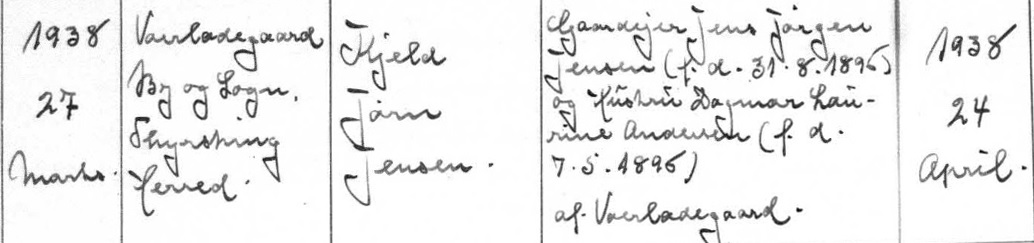 1938
27
Marts.
Voerladegaard
By og Sogn,
Thyrsting
Herred.
Kjeld
Jørn
Jensen.
Gaardejer Jens Jørgen
Jensen (f. d. 31.8.1896)
og Hustru Dagmar Lau-
rine Andersen (f. d.
7.5.1896)
af Voerladegaard.
1938
24
April.